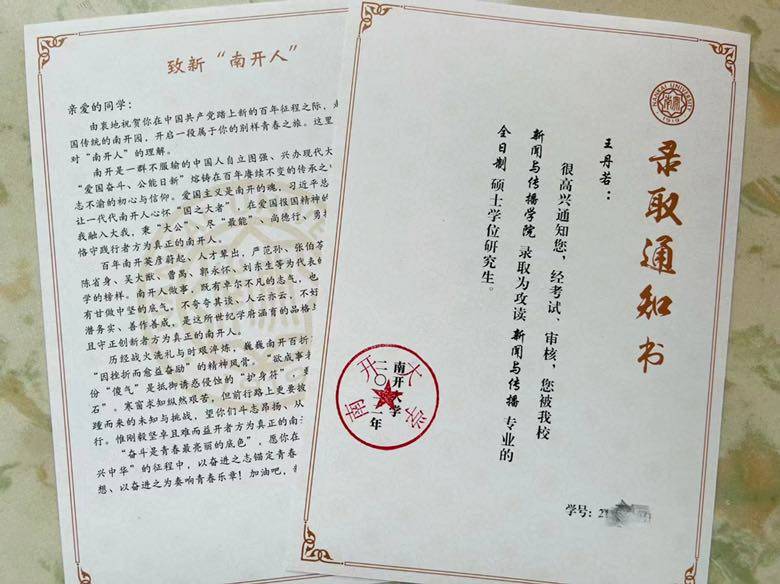 致新“南开人”
亲爱的同学：
由衷地祝贺你在中国共产党踏上新的百年征程之际，
国传统的南开园，开启一段属于你的别样青春之旅。这里
对“南开人”的理解。
南开是一群不服输的中国人自立图强、兴办现代大
“爱国奋斗、公能日新”熔铸在百年赓续不变的传承之
志不渝的初心与信仰。爱国主义是南开的魂，习近平总
让一代代南开人心怀“国之大者”，在爱国报国精神的
我融入大我，秉“大公”、尽“最能”、尚德行、勇
恪守践行者方为真正的南开人。
百年南开英彦蔚起、人才辈出，严范孙、张伯苓
陈省身、吴大猷、曹禺、郭永怀、刘东生等为代表的
学的榜样。南开人做事，既有卓尔不凡的志气，也
有甘做中坚的底气，不夸夸其谈、人云亦云，不好
潜务实、善作善成，是这所世纪学府涵育的品格
且守正创新者方为真正的南开人。
历经战火洗礼与时艰淬炼，巍巍南开百折
“因挫折而愈益奋励”的精神风骨。“欲成事者
份“傻气”是抵御诱惑侵蚀的“护身符”，
石”。寒窗求知纵然艰苦，但前行路上更要披
踵而来的未知与挑战，望你们斗志昂扬、从
行。惟刚毅坚卓且难而益开者方为真正的南
“奋斗是青春最亮丽的底色”，愿你在
兴中华”的征程中，以奋进之志锚定青春
想、以奋进之为奏响青春乐章！加油吧，
NANKAI UNIVERSITY
南开
1919
录取通知书
王丹若：
很高兴通知您，经考试、审核，您被我校
新闻与传播学院 录取为攻读 新闻与传播 专业的
全日制 硕士学位研究生。
南开大学
二〇二二年
南开大学
学号：2